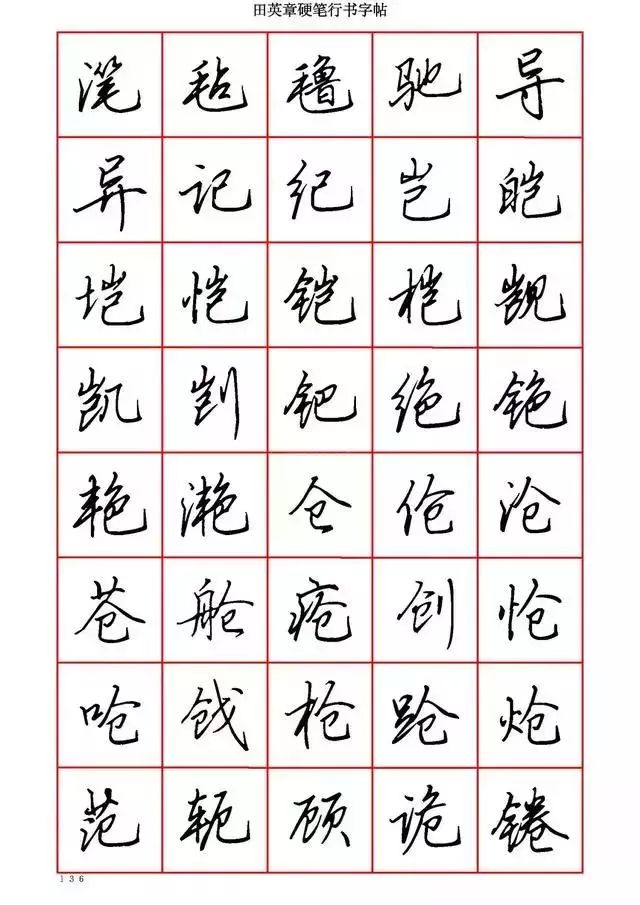 田英章硬笔行书字帖
滗 毡 氇 驰 导
异 记 纪 岂 皑
垲 恺 铠 桤 觊
凯 剀 钯 绝 铯
艳 滟 仓 伧 沧
苍 舱 疮 创 怆
呛 戗 枪 跄 炝
范 轭 顾 诡 锩
136